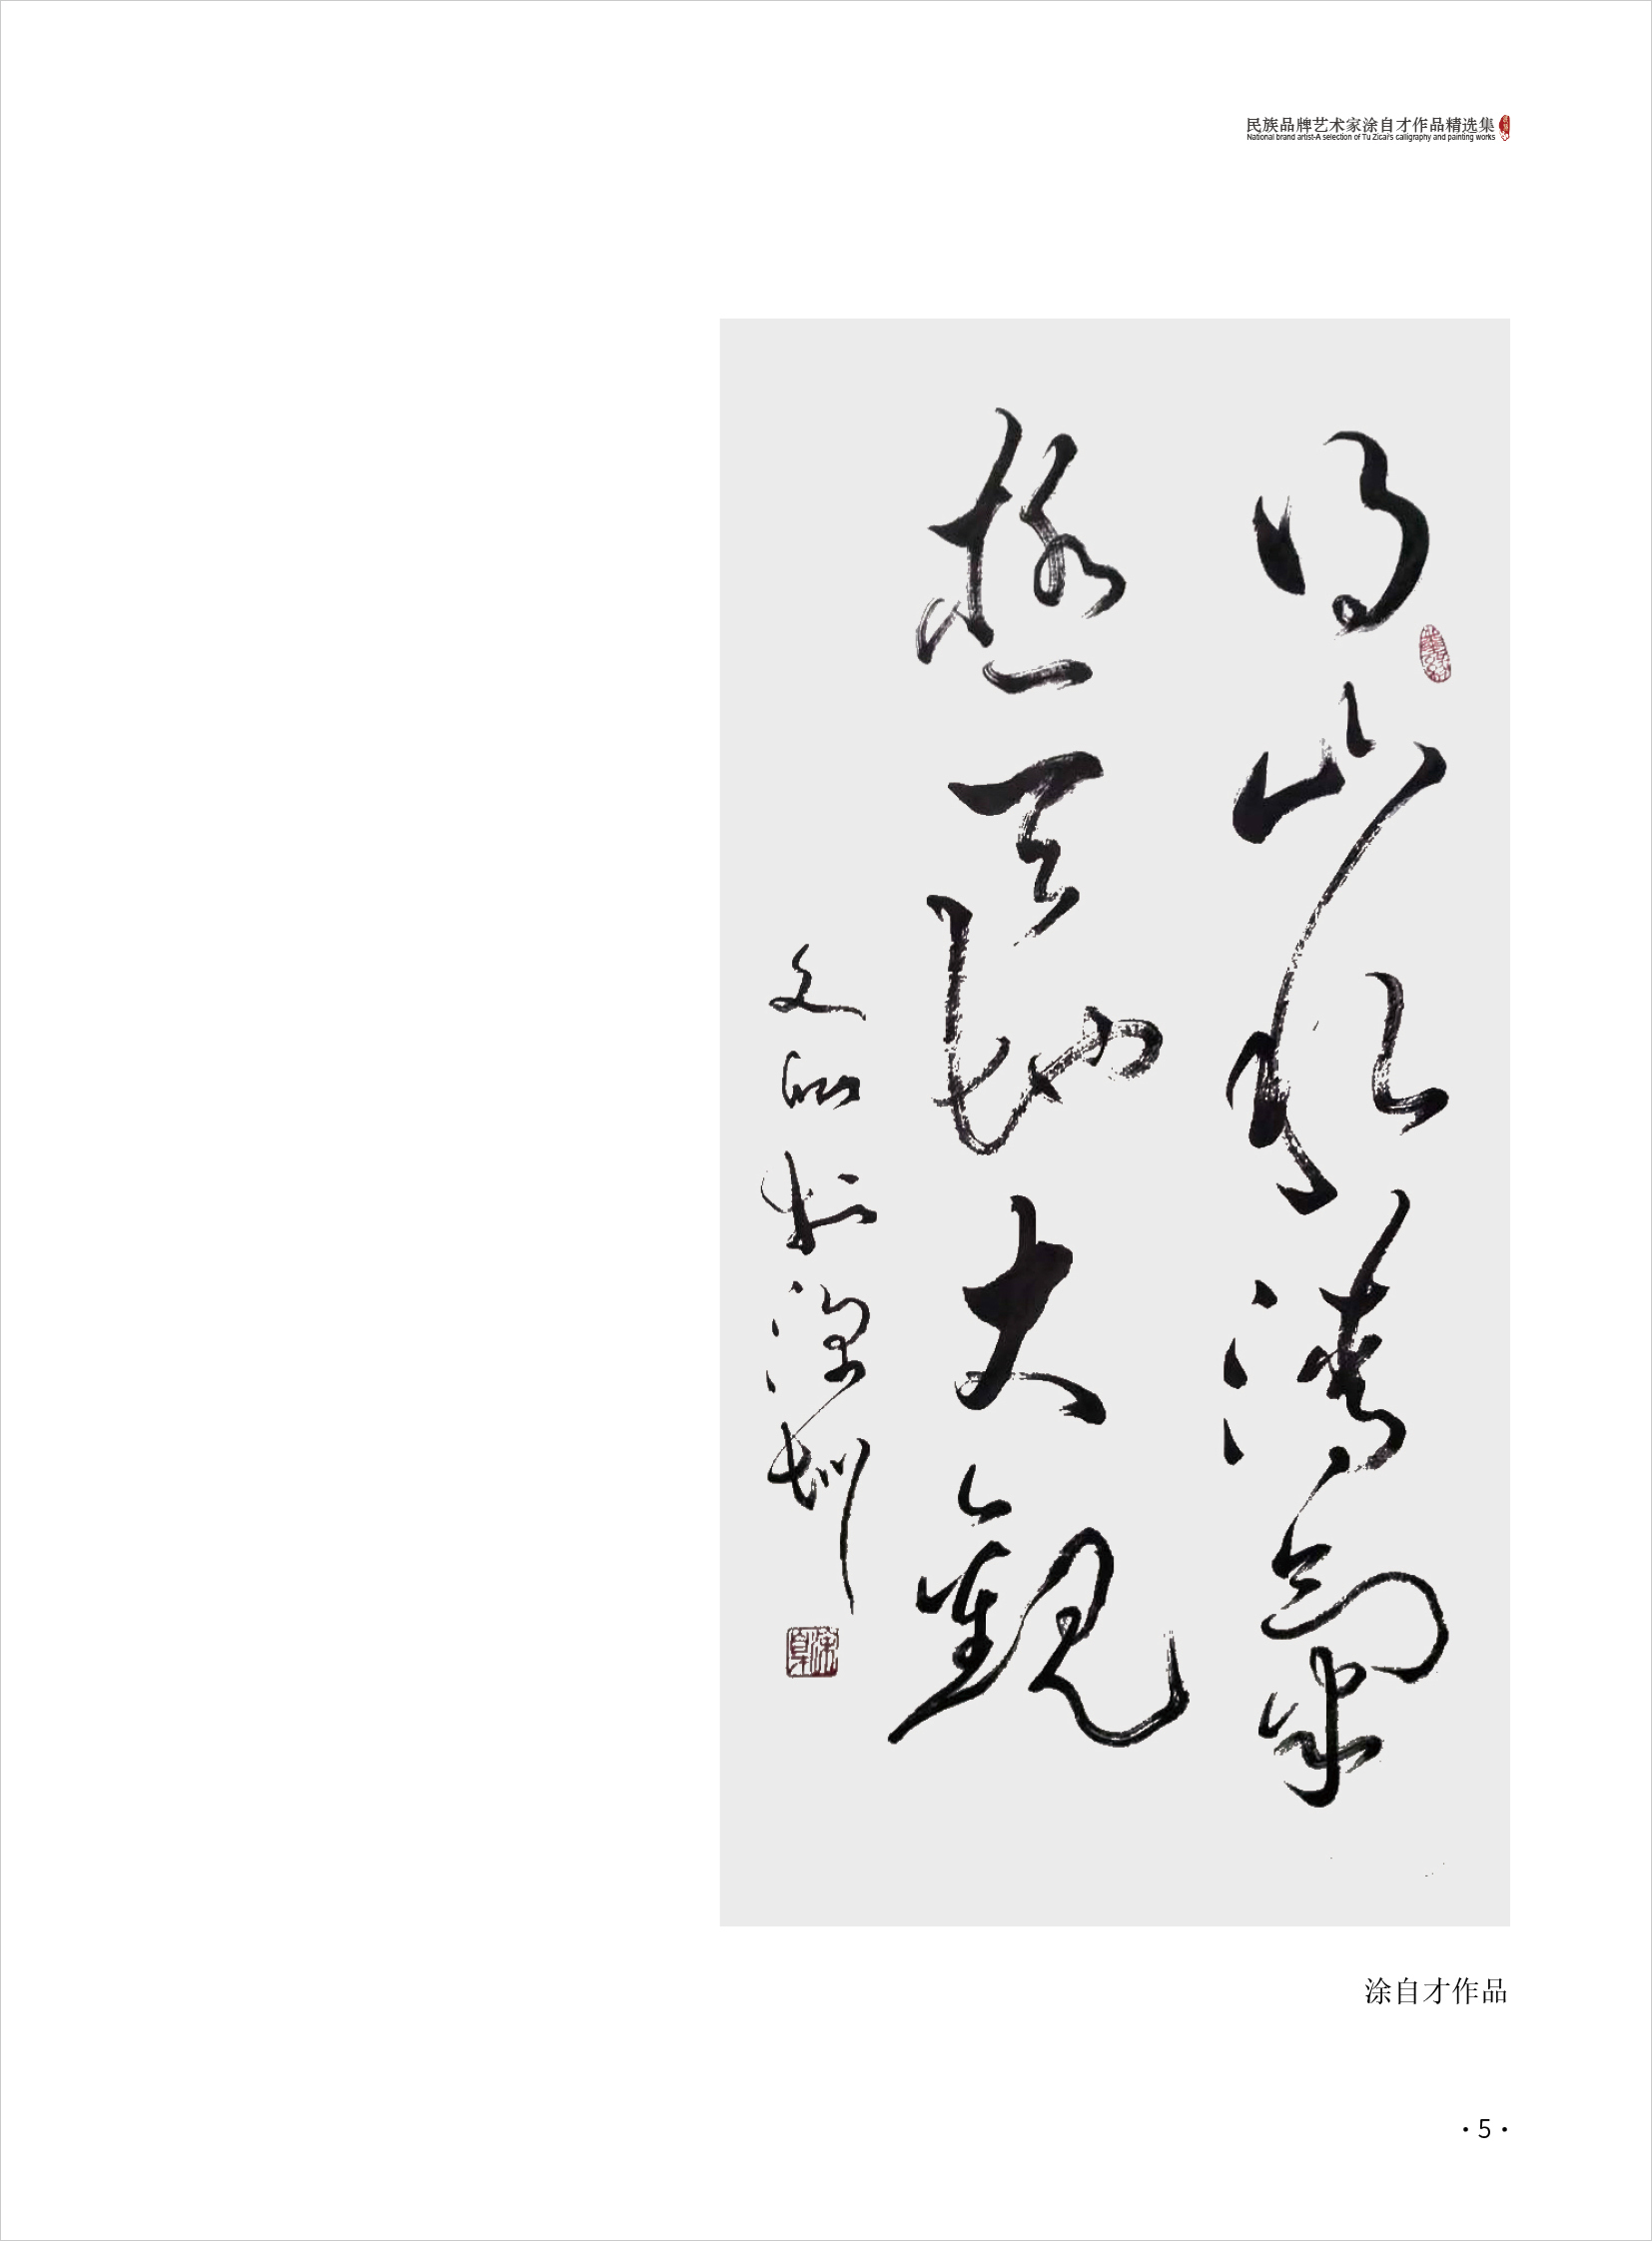 民族品牌艺术家涂自才作品精选集
National brand artist-A selection of Tu Zicai's calligraphy and painting works
得山水清氣
極天地大觀
文 於深圳
涂自才作品
·5·